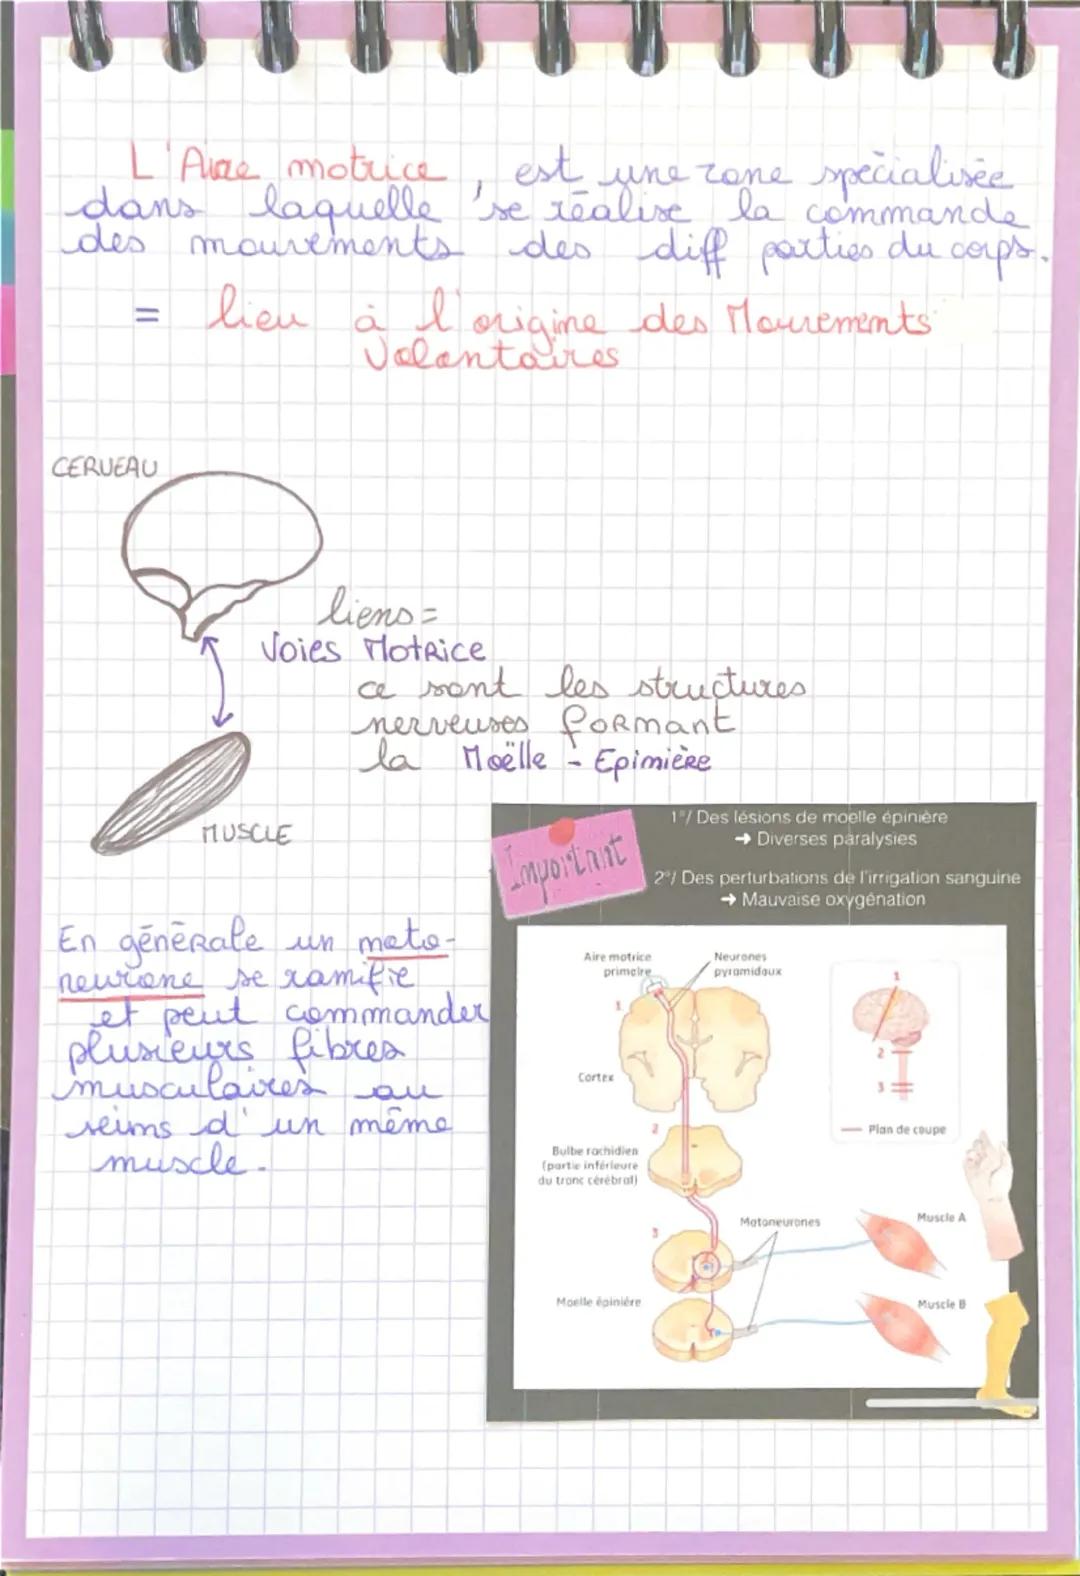 L'Aire motrice, est une zone spécialisée
dans laquelle se réalise la commande
des mouvements des diff parties du corps.
= lieu à l'origine des Mouvements
Volontaires
CERVEAU
liens =
Voies MotRice
ce sont les structures
nerveuses foRmant
la Moëlle - EpinièRe
MUSCLE
1°/ Des lésions de moelle épinière
→ Diverses paralysies
Important
2°/ Des perturbations de l'irrigation sanguine
→ Mauvaise oxygénation
En généRale un moto-
neurone se ramifie
et peut commander
plusieurs fibres
musculaires au
seins d'un même
muscle.
Aire motrice
primaire
Neurones
pyramidaux
1
Cortex
2
Bulbe rachidien
(partie inférieure
du tronc cérébral)
3
Motoneurones
Moelle épinière
1
2
3
Plan de coupe
Muscle A
Muscle B